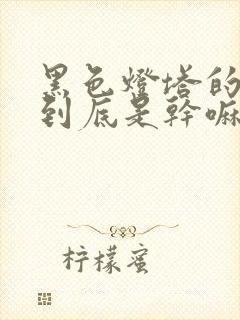 黑色燈塔的
到底是幹嘛
柠檬蜜